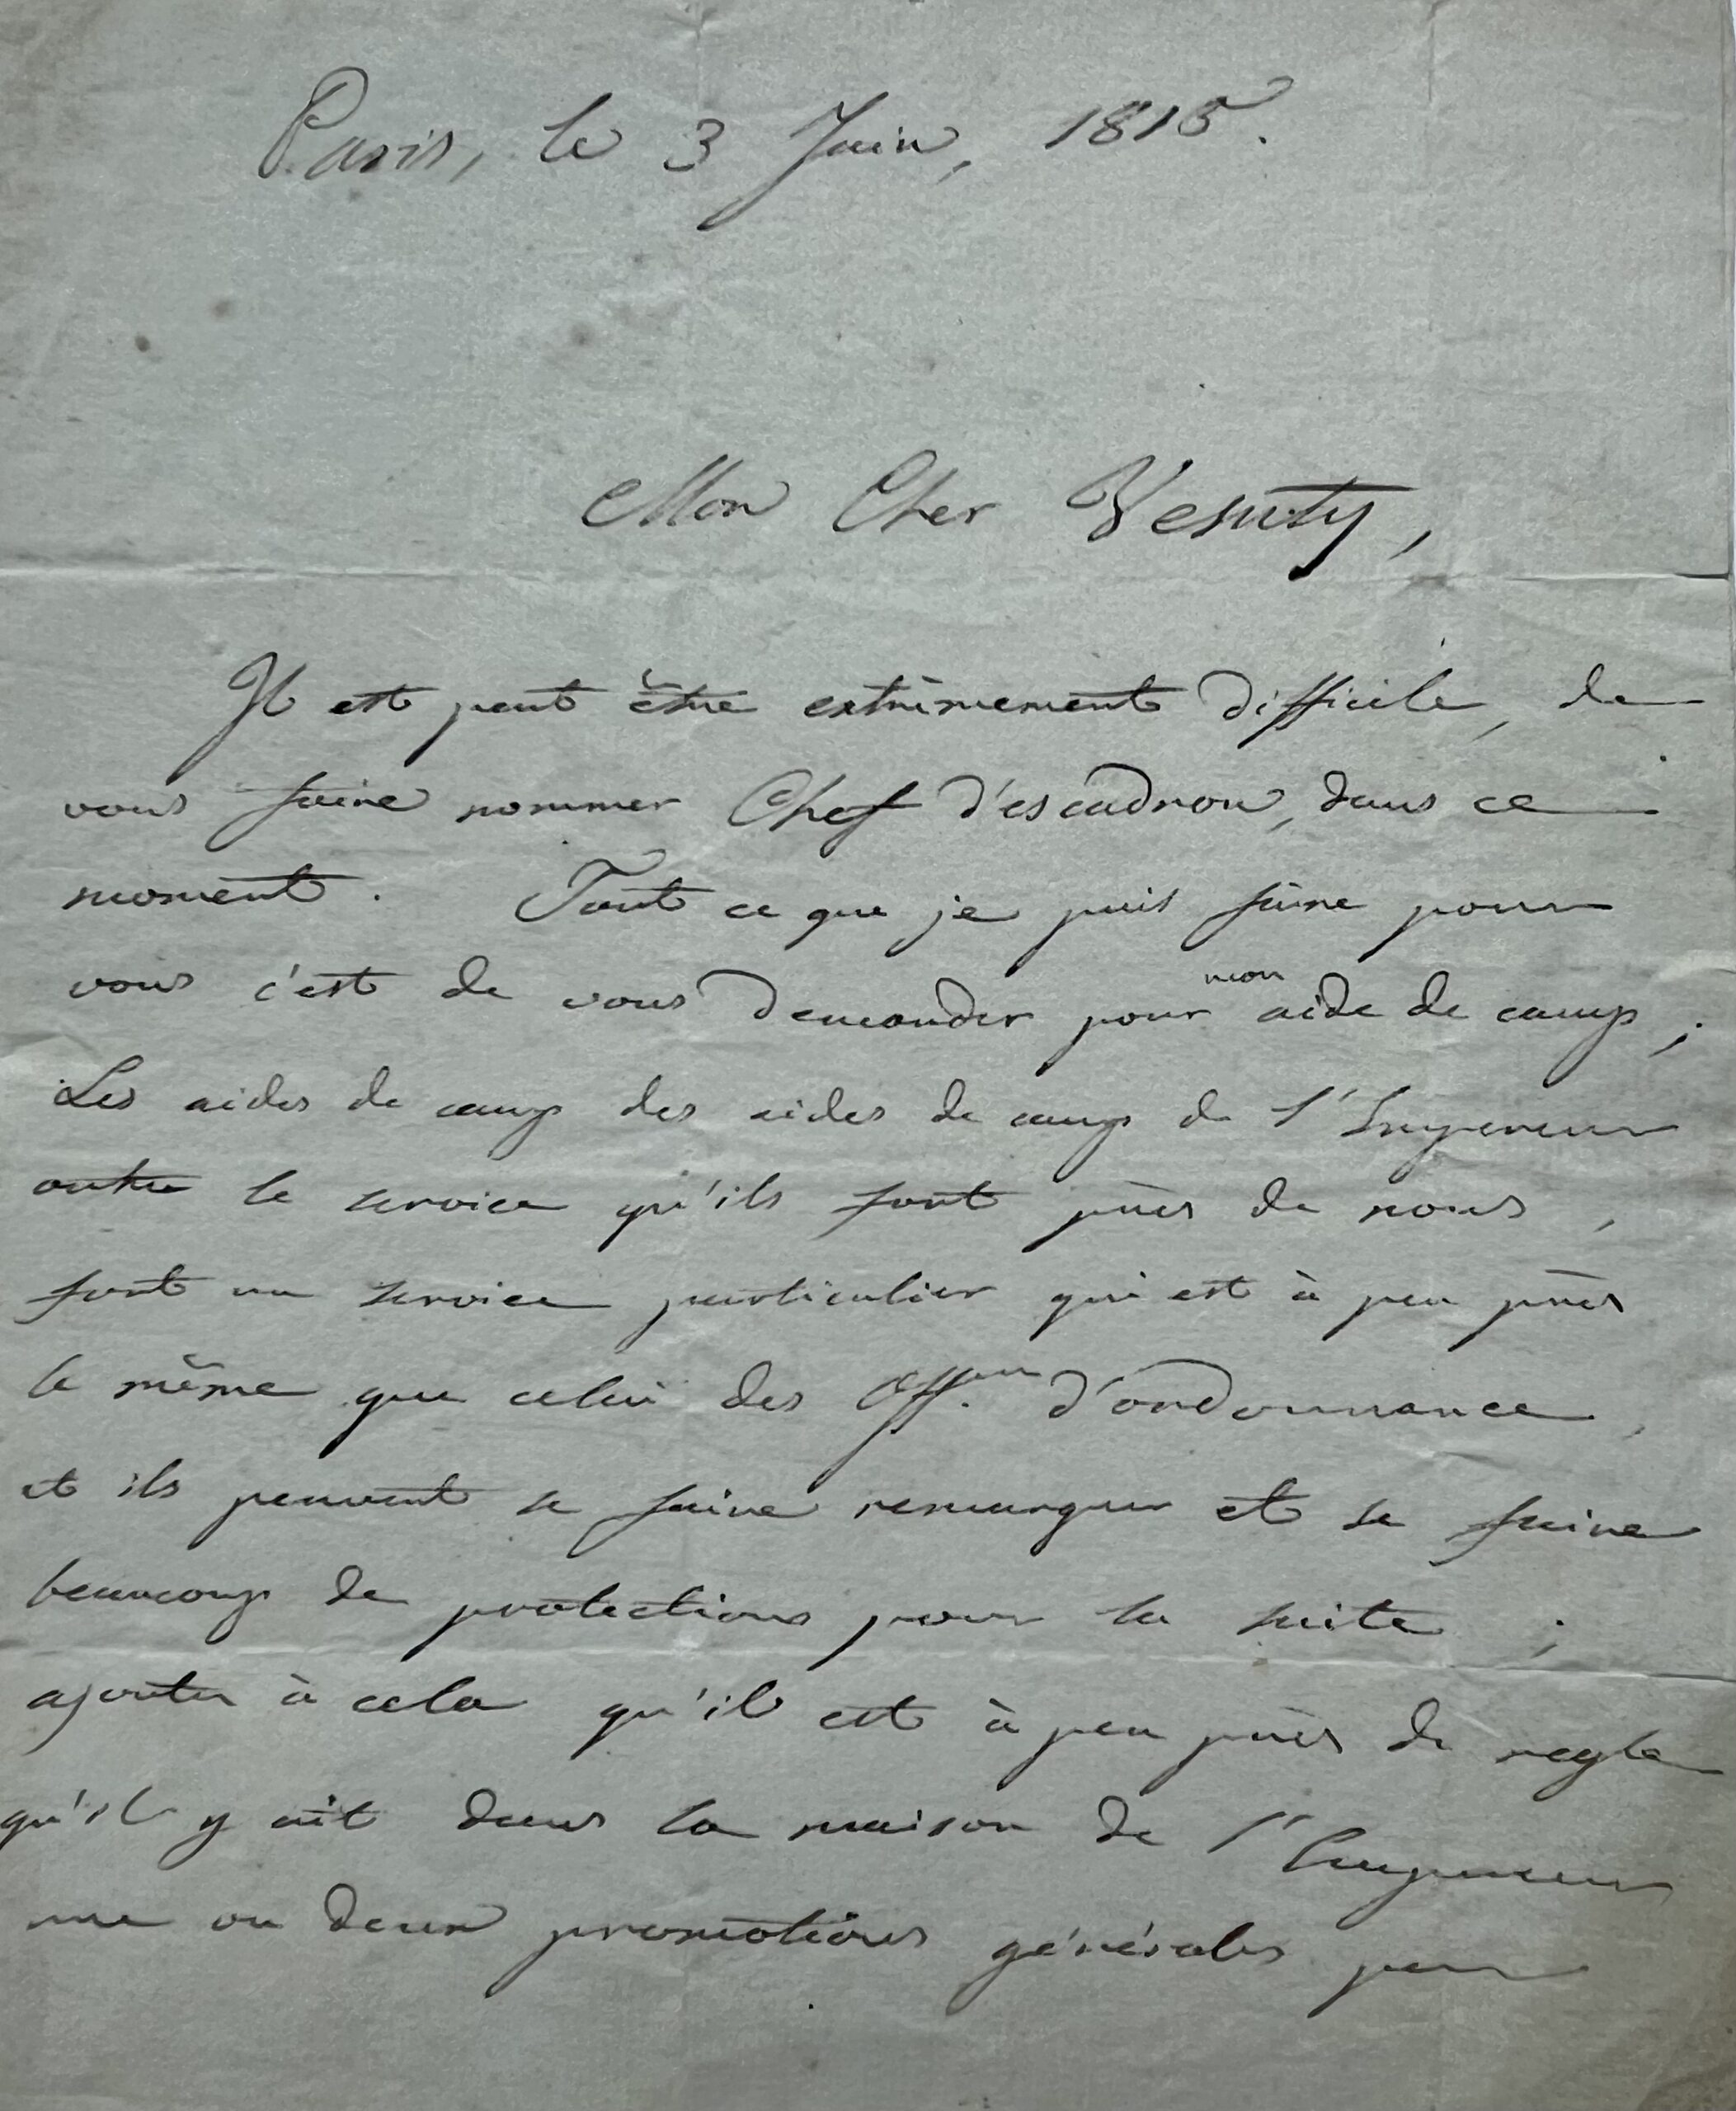 Paris, le 3 Juin, 1815.
Mon Cher Vesuty,
Il est peut être extrêmement difficile, de
vous faire nommer Chef d'escadron, dans ce
moment. Tout ce que je puis faire pour
vous c'est de vous demander pour mon aide de camp;
Les aides de camp des aides de camp de l'Empereur
outre le service qu'ils font près de nous,
font un service particulier qui est à peu près
le même que celui des Off. d'ordonnance,
et ils peuvent se faire remarquer et se faire
beaucoup de protections pour la suite;
ajouter à cela qu'il est à peu près de regle
qu'il y ait dans la maison de l'Empereur
une ou deux promotions générales par